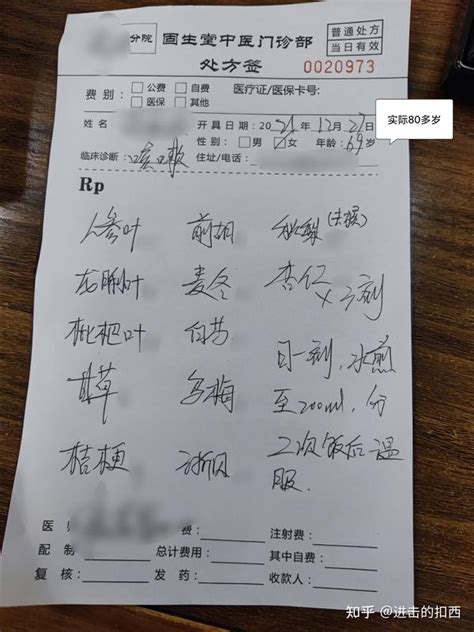 分院 固生堂中医门诊部 普通处方
处方签 当日有效
0020973
费别：□公费 □自费 医疗证/医保卡号：
□医保 □其他
实际80多岁
姓名 开具日期：2021年12月27日
临床诊断：咳嗽 性别：□男 ☑女 年龄：69岁
住址/电话：
Rp
人参叶 前胡 秋梨(去核)
龙脷叶 麦冬 杏仁
x 3剂
枇杷叶 白芍
日一剂，水煎
甘草 乌梅 至200ml，分
桔梗 浙贝 2次饭后温
服.
医 费： 注射费：
配制 总计费用： 其中自费：
复核： 发药： 收款人：
知乎 @进击的扣西